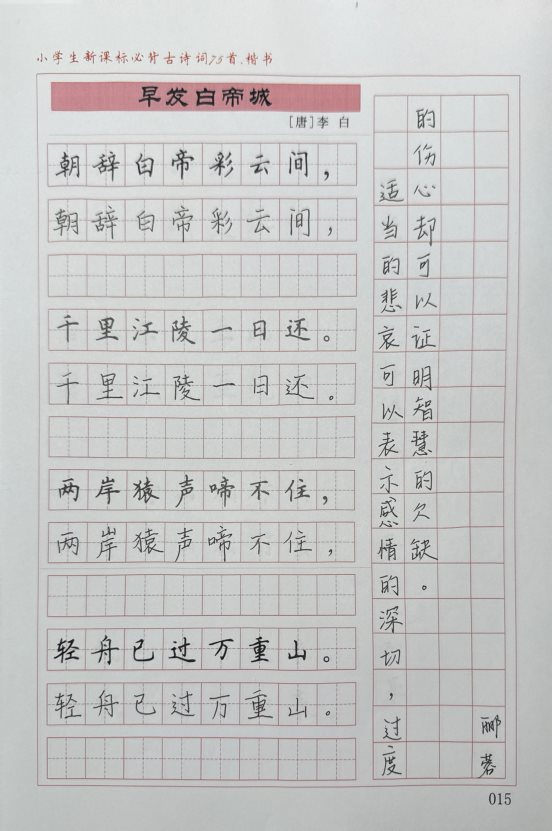 小学生新课标必背古诗词75首、楷书
早发白帝城
[唐]李白
朝辞白帝彩云间，
朝辞白帝彩云间，
千里江陵一日还。
千里江陵一日还。
两岸猿声啼不住，
两岸猿声啼不住，
轻舟已过万重山。
轻舟已过万重山。
适当的悲哀可以表示感情的深切，过度
的伤心却可以证明智慧的欠缺。
郦蓉
015